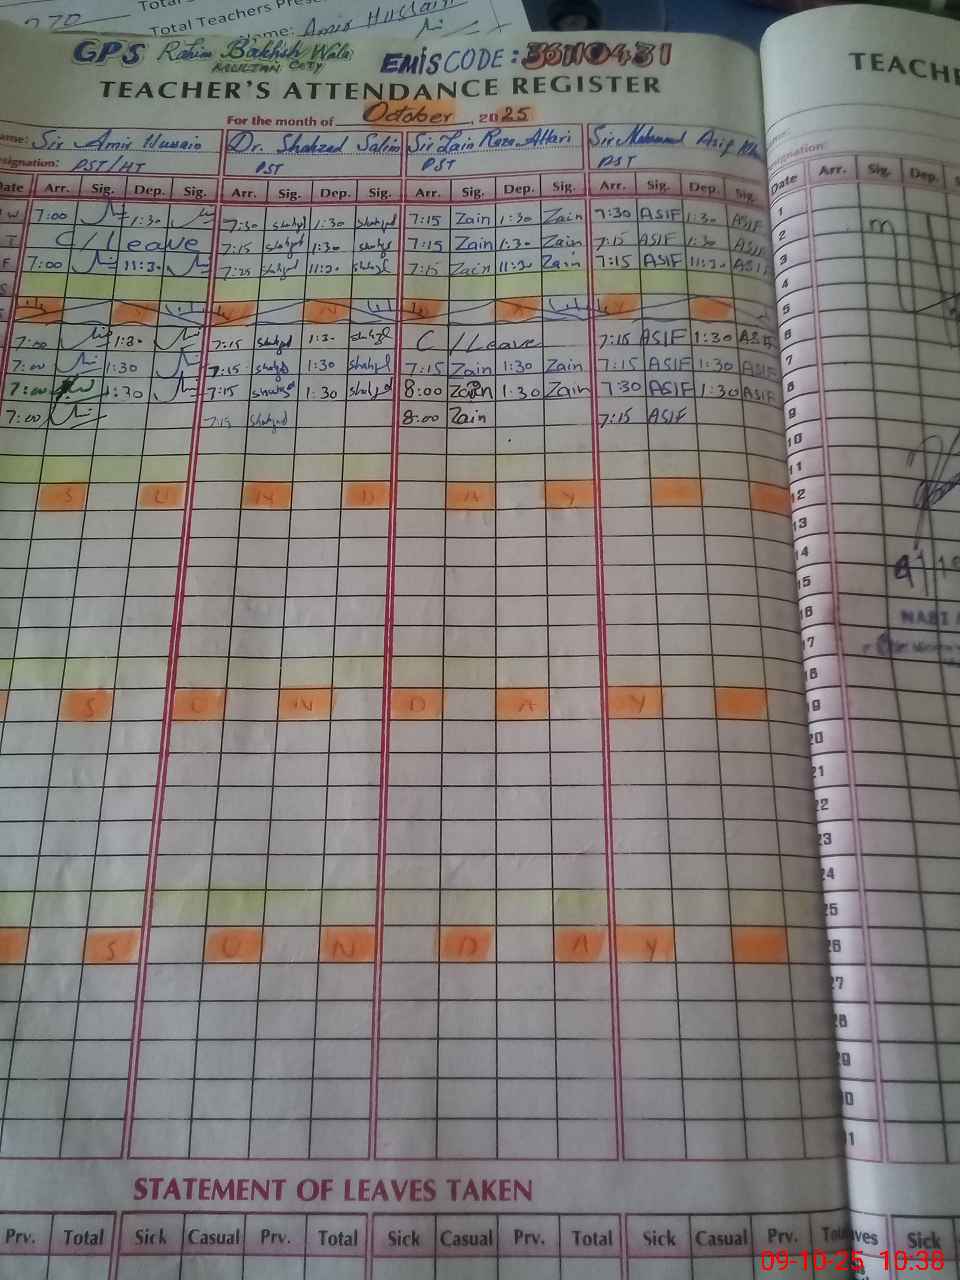 270
Total Teachers Pres
Name: Amir Hussain
GPS Rahim Bakhsh Wala EMIS CODE: 36110431
MULTAN CITY
TEACHER'S ATTENDANCE REGISTER
TEACHE
For the month of October, 2025
ame: Sir Amir Hussain Dr. Shahzad Salim Sir Zain Raza Attari Sir Mohammad Asif
signation: PST/HT PST PST PST
Date Arr. Sig. Dep. Sig. Arr. Sig. Dep. Sig. Arr. Sig. Dep. Sig. Arr. Sig. Dep. Sig. Date Arr. Sig. Dep.
W 7:00 1:30 7:30 shahzd 1:30 shahzd 7:15 Zain 1:30 Zain 7:30 ASIF 1:30 ASIF 1
T C/Leave 7:15 shahzd 1:30 shahzd 7:15 Zain 1:30 Zain 7:15 ASIF 1:30 ASIF 2
F 7:00 11:30 7:25 shahzd 11:30 shahzd 7:15 Zain 11:30 Zain 7:15 ASIF 11:30 ASIF 3
S 4
5
7:00 1:30 7:15 shahzd 1:30 shahzd C/Leave 7:15 ASIF 1:30 ASIF 6
7:00 1:30 7:15 shahzd 1:30 shahzd 7:15 Zain 1:30 Zain 7:15 ASIF 1:30 ASIF 7
7:00 1:30 7:15 1:30 shahzd 8:00 Zain 1:30 Zain 7:30 ASIF 1:30 ASIF 8
7:00 7:15 shahzd 8:00 Zain 7:15 ASIF 9
10
11
S U N D A Y 12
13
14
15
16
17
18
S U N D A Y 19
20
21
22
23
24
25
S U N D A Y 26
27
28
29
30
31
STATEMENT OF LEAVES TAKEN
Prv. Total Sick Casual Prv. Total Sick Casual Prv. Total Sick Casual Prv. Tot ves Sick
09-10-25 10:38